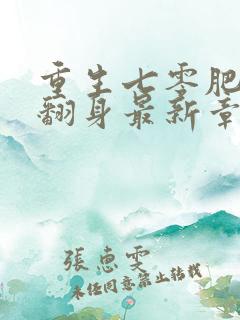 重生七零肥
翻身最新章
張惠雯
未经同意禁止转载